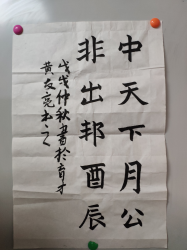 中天下月公
非出邦酉辰
戊戌仲秋書於育才
黄友亮书之